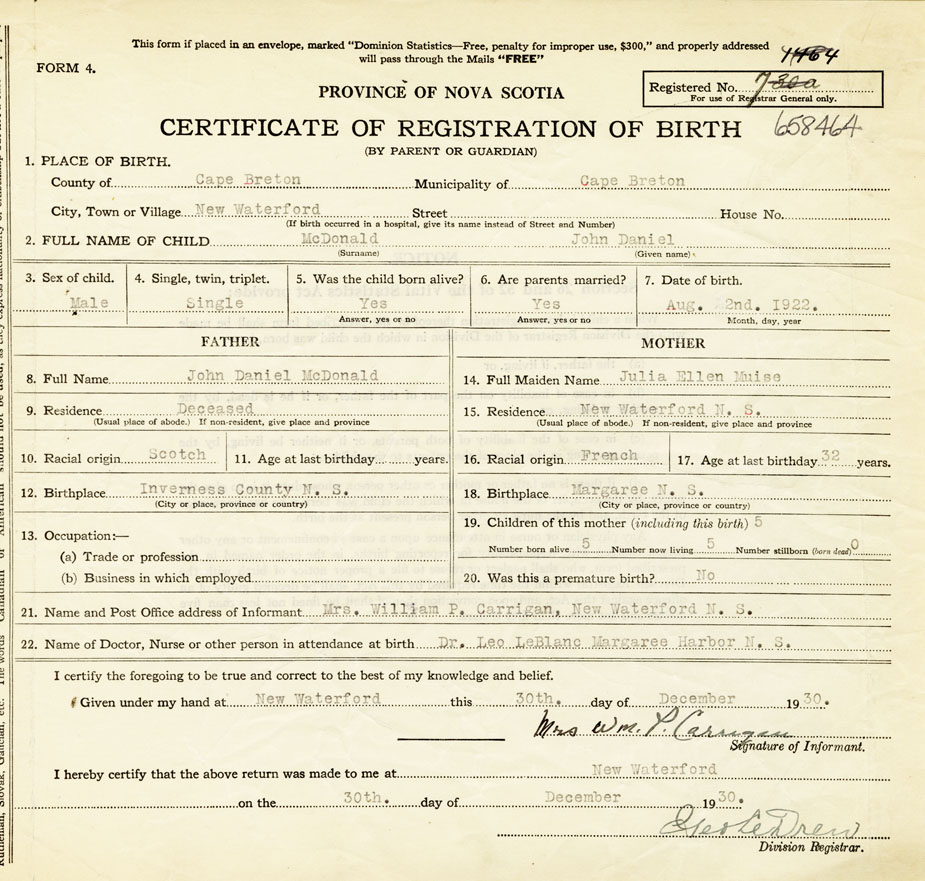 This form if placed in an envelope, marked "Dominion Statistics—Free, penalty for improper use, $300," and properly addressed
will pass through the Mails "FREE"
1464
FORM 4.
Registered No. 730a
For use of Registrar General only.
PROVINCE OF NOVA SCOTIA
CERTIFICATE OF REGISTRATION OF BIRTH 658464
(BY PARENT OR GUARDIAN)
1. PLACE OF BIRTH.
County of Cape Breton Municipality of Cape Breton
City, Town or Village New Waterford Street House No.
(If birth occurred in a hospital, give its name instead of Street and Number)
2. FULL NAME OF CHILD McDonald John Daniel
(Surname) (Given name)
3. Sex of child. 4. Single, twin, triplet. 5. Was the child born alive? 6. Are parents married? 7. Date of birth.
Male Single Yes Yes Aug. 2nd. 1922.
Answer, yes or no Answer, yes or no Month, day, year
FATHER MOTHER
8. Full Name John Daniel McDonald
14. Full Maiden Name Julia Ellen Muise
9. Residence Deceased
15. Residence New Waterford N. S.
(Usual place of abode.) If non-resident, give place and province
(Usual place of abode.) If non-resident, give place and province
10. Racial origin Scotch 11. Age at last birthday years.
16. Racial origin French 17. Age at last birthday 32 years.
12. Birthplace Inverness County N. S.
18. Birthplace Margaree N. S.
(City or place, province or country)
(City or place, province or country)
13. Occupation:—
19. Children of this mother (including this birth) 5
(a) Trade or profession
Number born alive 5 Number now living 5 Number stillborn (born dead) 0
(b) Business in which employed
20. Was this a premature birth? No
21. Name and Post Office address of Informant Mrs. William P. Carrigan, New Waterford N. S.
22. Name of Doctor, Nurse or other person in attendance at birth Dr. Leo LeBlanc Margaree Harbor N. S.
I certify the foregoing to be true and correct to the best of my knowledge and belief.
Given under my hand at New Waterford this 30th. day of December 1930.
Mrs Wm. P. Carrigan
Signature of Informant.
I hereby certify that the above return was made to me at New Waterford
on the 30th. day of December 1930.
Division Registrar.